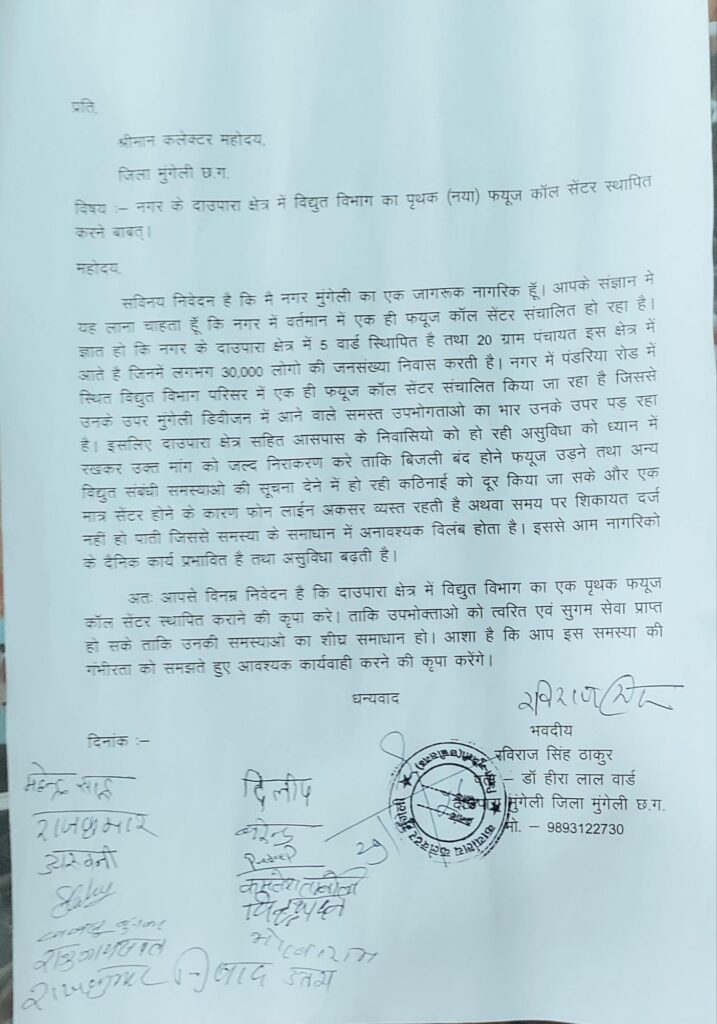 प्रति,
श्रीमान कलेक्टर महोदय,
जिला मुंगेली छ.ग.
विषय :– नगर के दाउपारा क्षेत्र में विद्युत विभाग का पृथक (नया) फयूज कॉल सेंटर स्थापित
करने बाबत्।
महोदय,
सविनय निवेदन है कि मै नगर मुंगेली का एक जागरूक नागरिक हूँ। आपके संज्ञान मे
यह लाना चाहता हूँ कि नगर में वर्तमान में एक ही फयूज कॉल सेंटर संचालित हो रहा है।
ज्ञात हो कि नगर के दाउपारा क्षेत्र में 5 वार्ड स्थापित है तथा 20 ग्राम पंचायत इस क्षेत्र में
आते है जिनमें लगभग 30,000 लोगो की जनसंख्या निवास करती है। नगर में पंडरिया रोड में
स्थित विद्युत विभाग परिसर में एक ही फयूज कॉल सेंटर संचालित किया जा रहा है जिससे
उनके उपर मुंगेली डिवीजन में आने वाले समस्त उपभोगताओ का भार उनके उपर पड़ रहा
है। इसलिए दाउपारा क्षेत्र सहित आसपास के निवासियो को हो रही असुविधा को ध्यान में
रखकर उक्त मांग को जल्द निराकरण करे ताकि बिजली बंद होने फयूज उड़ने तथा अन्य
विद्युत संबंधी समस्याओ की सूचना देने में हो रही कठिनाई को दूर किया जा सके और एक
मात्र सेंटर होने के कारण फोन लाईन अकसर व्यस्त रहती है अथवा समय पर शिकायत दर्ज
नहीं हो पाती जिससे समस्या के समाधान में अनावश्यक विलंब होता है। इससे आम नागरिको
के दैनिक कार्य प्रभावित है तथा असुविधा बढ़ती है।
अतः आपसे विनम्र निवेदन है कि दाउपारा क्षेत्र में विद्युत विभाग का एक पृथक फयूज
कॉल सेंटर स्थापित कराने की कृपा करे। ताकि उपभोक्ताओ को त्वरित एवं सुगम सेवा प्राप्त
हो सके ताकि उनकी समस्याओ का शीघ्र समाधान हो। आशा है कि आप इस समस्या की
गंभीरता को समझते हुए आवश्यक कार्यवाही करने की कृपा करेंगे।
धन्यवाद
भवदीय
दिनांक :–
रविराज सिंह ठाकुर
– डॉ हीरा लाल वार्ड
मुंगेली जिला मुंगेली छ.ग.
मो. – 9893122730
महेन्द्र साहू
दिलीप
राजकुमार